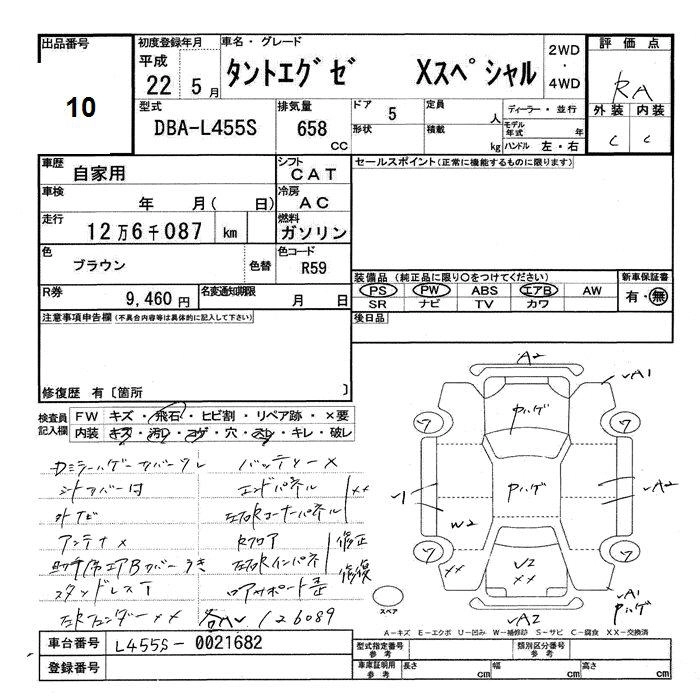 出品番号
10
初度登録年月
平成
22 5月
車名・グレード
タントエグゼ Xスペシャル
2WD
・
4WD
評価点
RA
外装 内装
C C
型式
DBA-L455S
排気量
658
CC
ドア 5
形状
定員 人
積載 kg
ディーラー・並行
モデル年式 年
ハンドル 左・右
車歴
自家用
シフト
CAT
車検
年 月( 日)
冷房
AC
走行
12万6千087 km
燃料
ガソリン
色
ブラウン
色替
色コード
R59
R券
9,460円
名変通知期限
月 日
セールスポイント(正常に機能するものに限ります)
装備品 (純正品に限り○をつけてください)
PS PW ABS エアB AW
SR ナビ TV カワ
新車保証書
有・無
後日品
注意事項申告欄(不具合内容等は具体的に記入して下さい)
修復歴 有〔箇所 〕
検査員
記入欄
FW キズ・飛石・ヒビ割・リペア跡・×要
内装 キズ・汚レ・コゲ・穴・スレ・キレ・破レ
バッテリー×
シートカバー付
エンドパネル
外ナビ
左右Rコーナーパネル
××
アンテナ×
Rフロア
修正
助手席エアBカバーうき
左右Rインパネ
修復
スタッドレスT
ロアサポート歪
左右Fフェンダー××
126089
A2
√A1
Pハゲ
ワ
ワ
Pハゲ
√1
√A2
W2
ワ
ワ
××
√2
××
√A2
√A1
Pハゲ
スペア
A-キズ E-エクボ U-凹み W-補修跡 S-サビ C-腐食 XX-交換済
車台番号
L455S-0021682
登録番号
型式指定番号
参考
類別区分番号
参考
車庫証明用
参考
長さ cm
幅 cm
高さ cm